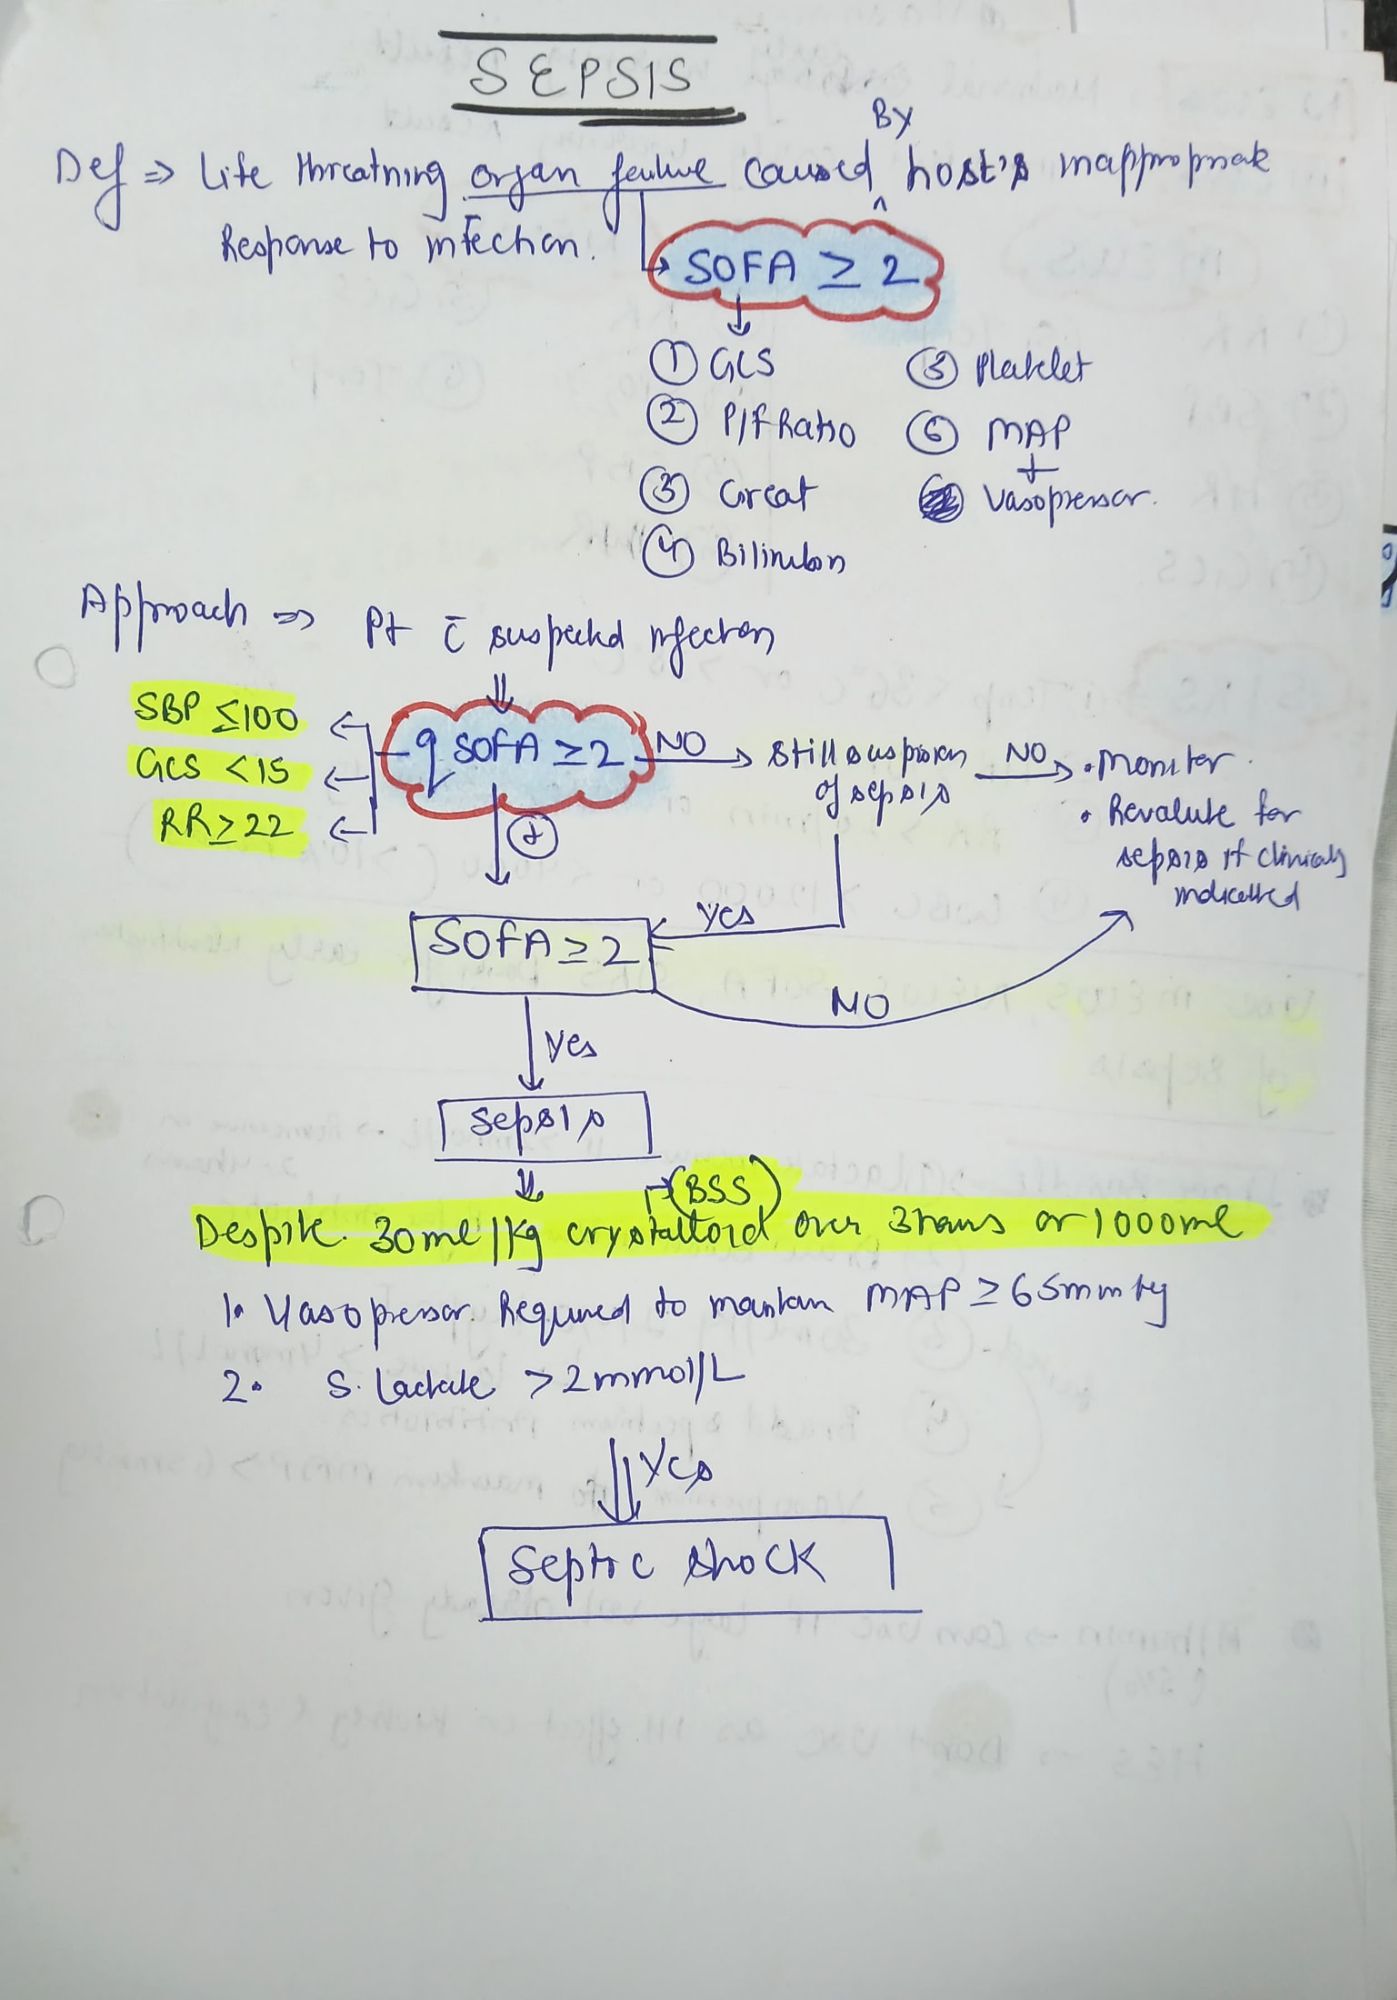 SEPSIS
By
Def ⇒ Life threatning organ failure caused ^ host's inappropriate
Response to infection.
SOFA ≥ 2
① GCS
② P/F Ratio
③ Creat
④ Bilirubin
⑤ Platelet
⑥ MAP
+
Vasopressor.
Approach ⇒ Pt c̄ suspected infection
SBP ≤100
GCS <15
RR ≥ 22
qSOFA ≥ 2
NO
Still suspicion
of sepsis
NO
• Monitor.
• Revalute for
sepsis if clinicaly
indicated
+
SOFA ≥ 2
Yes
NO
Yes
Sepsis
(BSS)
Despite 30ml/kg crystalloid over 3hours or 1000ml
1. Vasopressor Required to maintain MAP ≥ 65mmHg
2. S. Lactate >2mmol/L
Yes
Septic shock